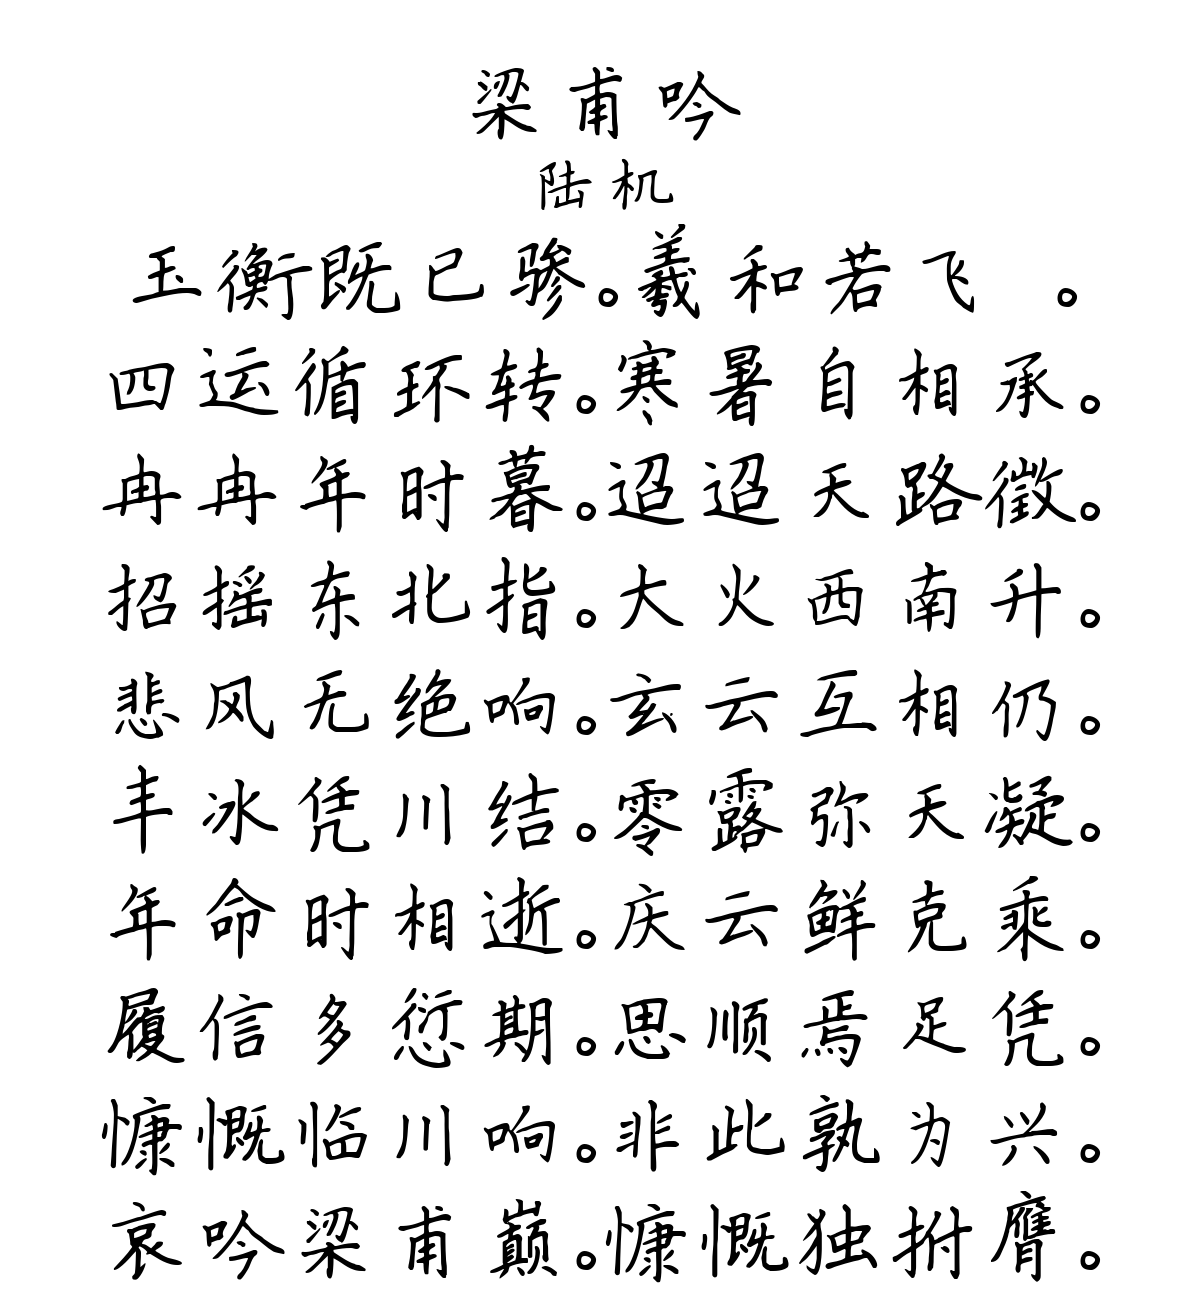 梁甫吟
陆机
玉衡既已骖。羲和若飞 。
四运循环转。寒暑自相承。
冉冉年时暮。迢迢天路徵。
招摇东北指。大火西南升。
悲风无绝响。玄云互相仍。
丰冰凭川结。零露弥天凝。
年命时相逝。庆云鲜克乘。
履信多愆期。思顺焉足凭。
慷慨临川响。非此孰为兴。
哀吟梁甫巅。慷慨独拊膺。